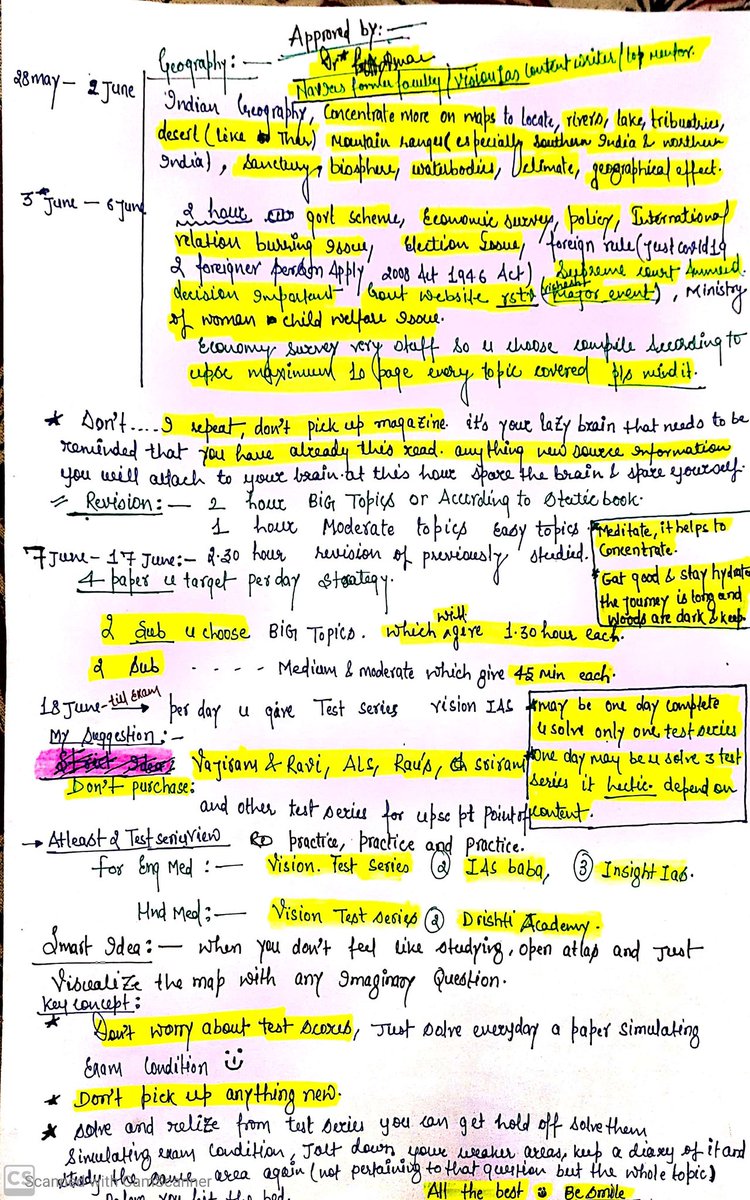 Approved by:-
Dr*
Geography:-
Nav former faculty/Vision Ias content writer/top mentor.
28 may - 2 June
Indian Geography, Concentrate more on maps to locate, rivers, lake, tributries,
desert (like Thar) Mountain ranges (especially southern India & northern
India), Sanctury, biosphere, waterbodies, climate, geographical effect.
3rd June - 6 June
2 hour govt scheme, Economic survey, policy, International
relation burring Issue, Election Issue, foreign rule (Just covid 19
2 foreigner person Apply 2008 Act 1946 Act) Supreme court
decision Important Govt website (Major event), Ministry
of woman child welfare Issue.
Economy survey very staff so u choose compile According to
upsc maximum 10 page every topic covered pls mind it.
* Don't.... I repeat, don't pick up magazine. it's your lazy brain that needs to be
reminded that you have already this read. anything new source information
you will attach to your brain at this hour spare the brain & spare yourself.
= Revision:- 2 hour BIG Topics or According to Static book.
1 hour Moderate topics Easy topics.
* Meditate, it helps to
concentrate.
* Eat good & stay hydrate
the journey is long and
woods are dark & keep
7 June - 17 June:- 2.30 hour revision of previously studied.
4 paper u target per day Strategy.
2 Sub u choose BIG Topics. which will give 1.30 hour each.
2 Sub - - - - - Medium & moderate which give 45 min each.
18 June - till Exam → per day u gave Test series vision IAS
* may be one day complete
u solve only one test series
* One day may be u solve 3 test
series it hectic. depend on
content.
My Suggestion:-
Strict Idea: Vajiram & Ravi, ALS, Rau's, sriram
Don't purchase:
and other test series for upsc pt point of
→ Atleast 2 Test series view practice, practice and practice.
for Eng Med:- Vision. Test Series ② IAS baba, ③ Insight Ias.
Hnd Med:- Vision Test Series ② Drishti Academy.
Smart Idea:- when you don't feel like studying, open atlas and Just
Visualize the map with any Imaginary Question.
Key concept:
* Don't worry about test scores, Just solve everyday a paper simulating
Exam Condition
* Don't pick up anything new.
* solve and relize from test series you can get hold off solve them
Simulating exam condition, Jolt down your weaker areas, keep a diary of it and
study the same area again (not pertaining to that question but the whole topic)
Before you hit the bed.
All the best Be smile
CS Scanned with CamScanner